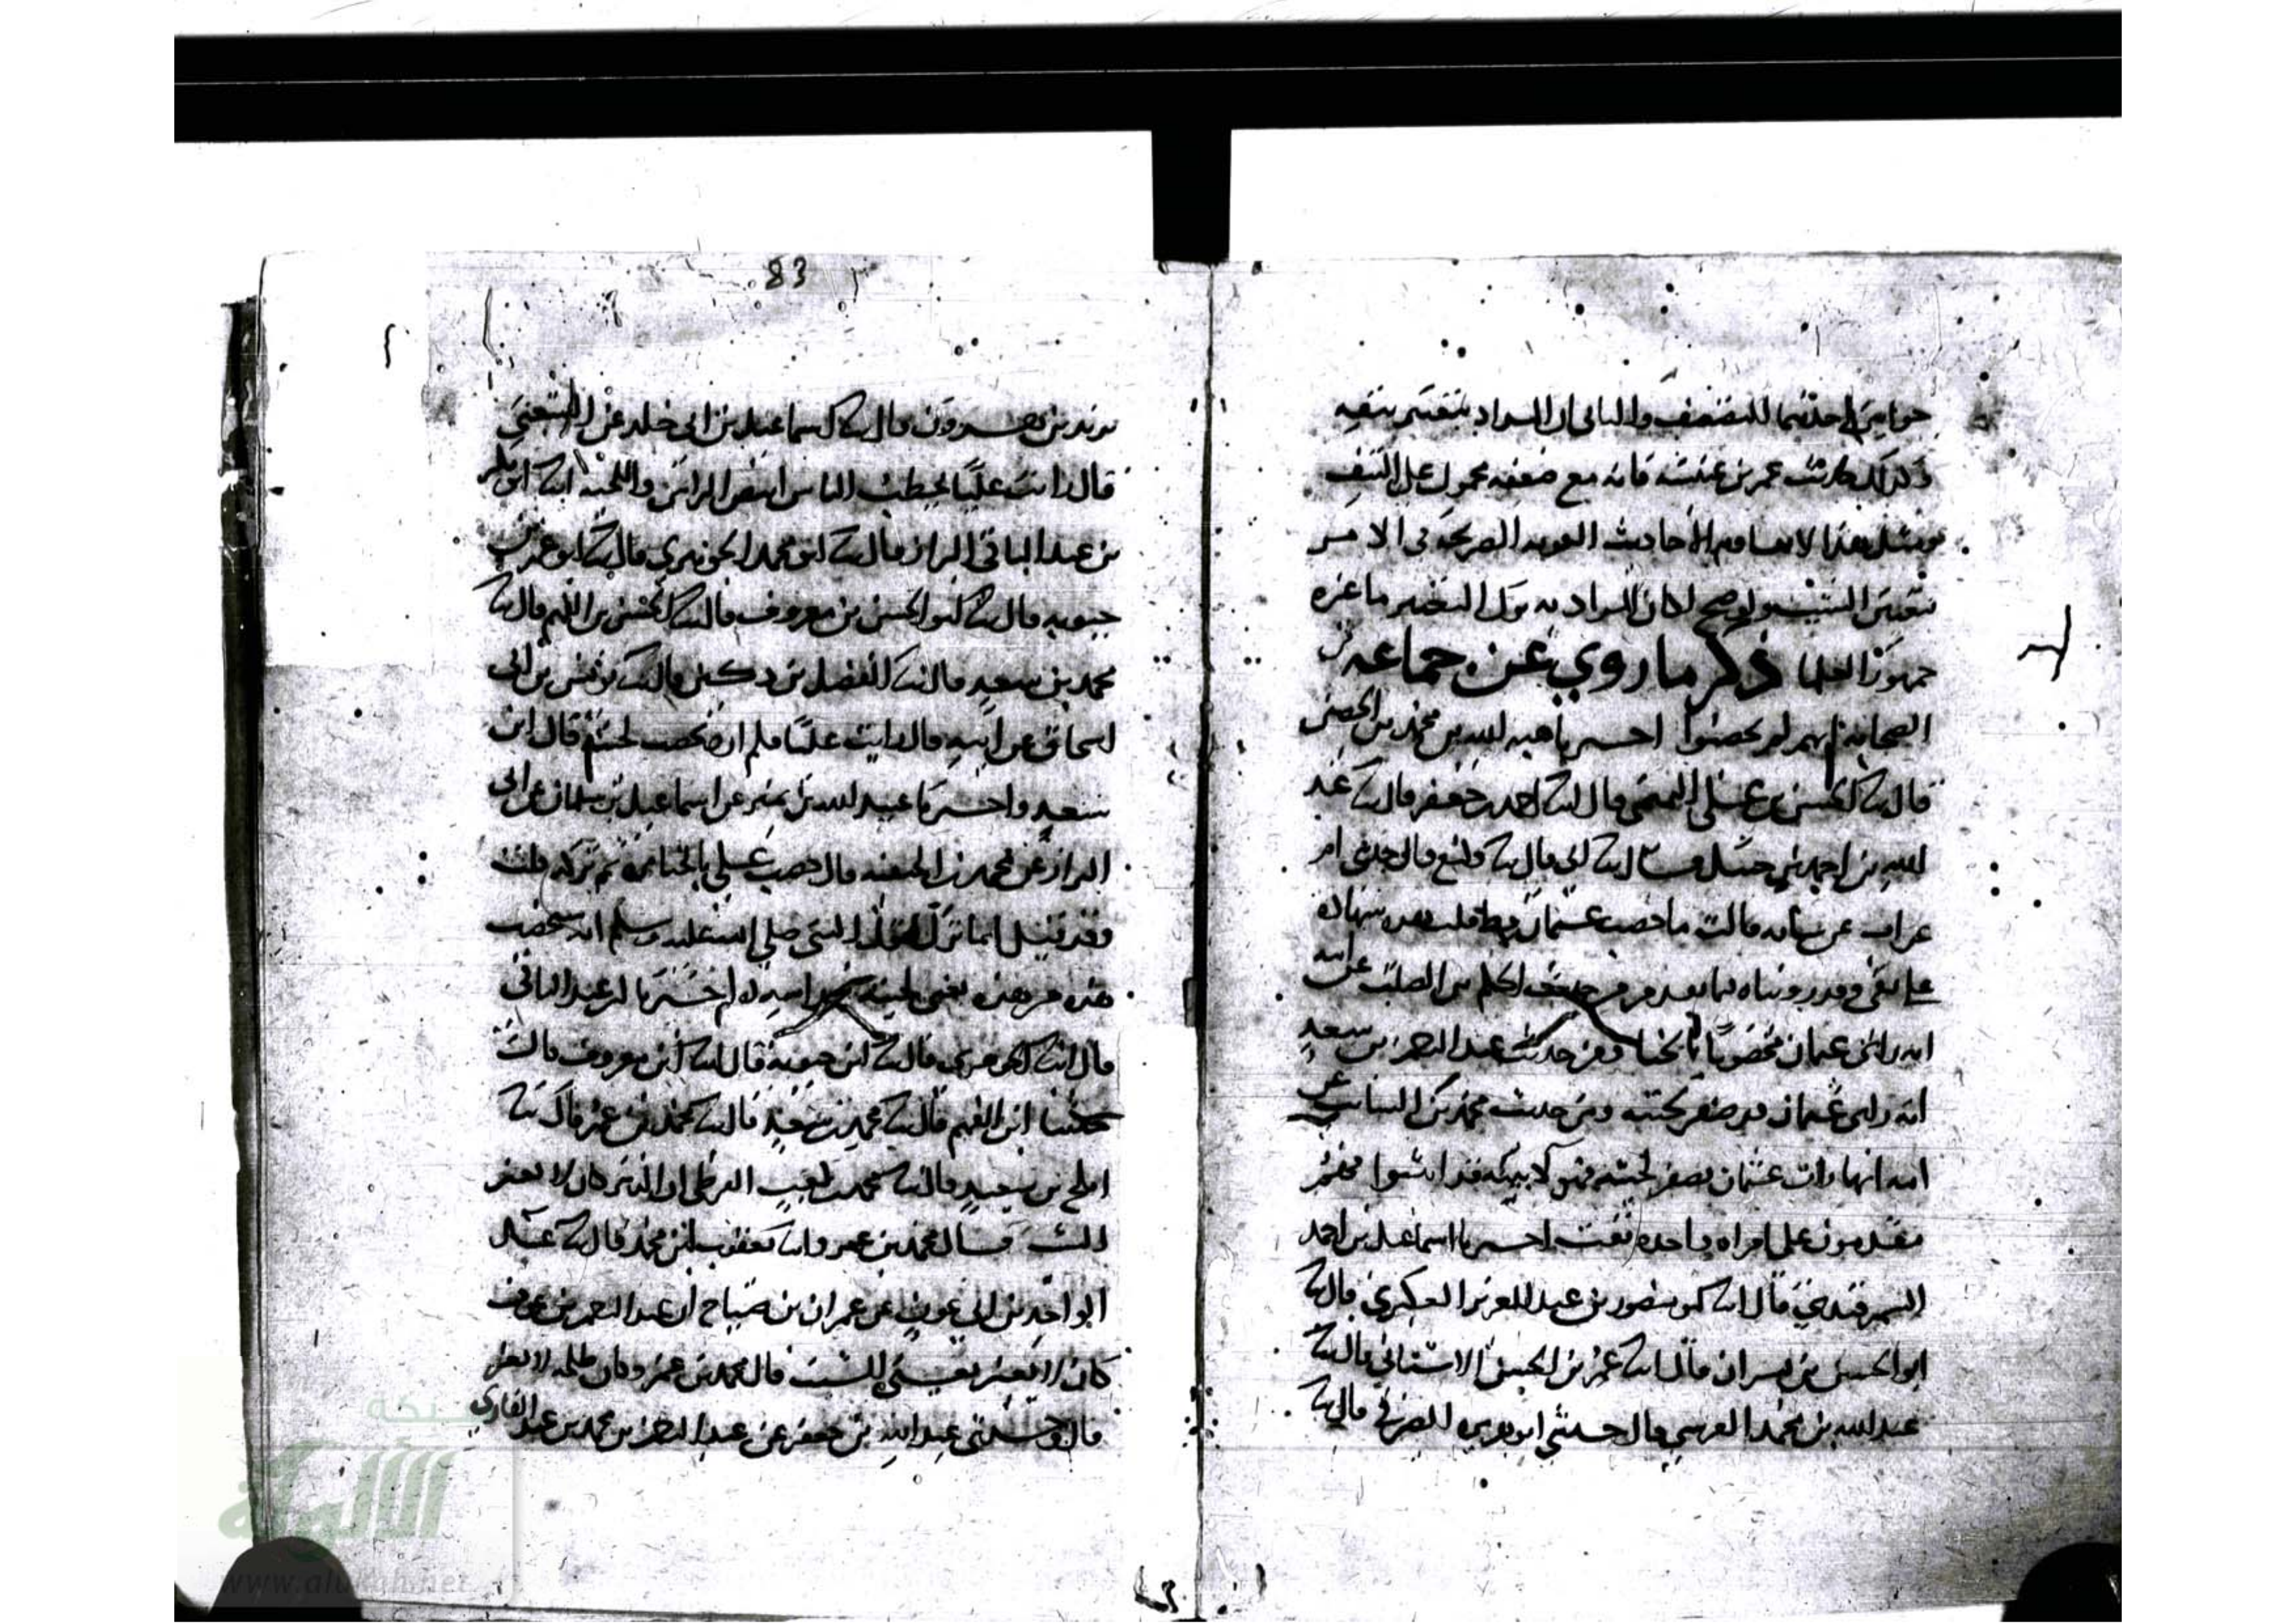 جوابين احدهما للضعف والثاني ان المراد بتغيير بتغييره
وكذلك حديث عمر بن عنبسة فانه مع ضعفه محمول على النتف
ومثل هذا لا يقاوم الأحاديث القوية الصريحة في الامر
بتغيير الشيب ولو صح لكان المراد به ترك التغيير ما غيره
جمهور العلما ذكر ما روي عن جماعة من
الصحابة انهم لم يخضبوا اخبرنا هبة الله بن محمد بن الحصين
قال انبا الحسن بن علي التميمي قال انبا احمد بن جعفر قال ثنا عبد
الله بن احمد بن حنبل قال ثنا ابي قال ثنا وكيع قال حدثتني ام
عراب عن بنانه قالت ما خضب عثمان قط قلت هذه شهادة
على نفي وقد روينا فيما تقدم من حديث الحكم بن الصلت عن ابيه
انه راى عثمان مخضوبا بالحنا ومن حديث عبد الرحمن بن سعد
انه راى عثمان قد صفر لحيته ومن حديث محمد بن السائب عن
امه انها رات عثمان يصفر لحيته فهولا قد اثبتوا فهم
مقدمون على امراة واحدة نفت اخبرنا اسماعيل بن احمد
السمرقندي قال انبا ابو منصور بن عبد العزيز العكبري قال ثنا
ابو الحسين بن بشران قال انبا عمر بن الحسن الاشناني قال ثنا
عبد الله بن محمد القرشي قال حدثني ابو هريرة الصيرفي قال ثنا
83
يزيد بن هرون قال ثنا اسماعيل بن ابي خالد عن الشعبي
قال رايت عليا يخطب الناس ابيض الراس واللحية انبا ابو بكر
بن عبد الباقي البزاز قال انبا ابو محمد الجوهري قال انبا ابو عمر بن
حيويه قال انبا ابو الحسن بن معروف قال ثنا الحسين بن الفهم قال ثنا
محمد بن سعد قال ثنا الفضل بن دكين قال ثنا يونس بن ابي
اسحاق عن ابيه قال رايت عليا فلم اره خضب لحيته قال ابن
سعد واخبرنا عبيد الله بن نمير عن اسماعيل بن سلمان عن ابي
البزاز عن محمد بن الحنفية قال خضب علي بالحنا مرة ثم تركه قلت
وقد قيل انما ترك لقول النبي صلى الله عليه وسلم انه سيخضب
هذه من هذه يعني لحيته من راسه اخبرنا ابن عبد الباقي
قال انبا الجوهري قال انبا ابن حيويه قال انبا ابن معروف قال ثنا
ابن الفهم قال ثنا محمد بن سعد قال ثنا محمد بن عمر قال ثنا
افلح بن سعيد قال ثنا محمد بن كعب القرظي ان الزبير كان لا يغير
الشيب قال محمد بن عمر وانبا يعقوب بن محمد قال ثنا عبد
الواحد بن ابي عون عن عمران بن مناح ان عبد الرحمن بن عوف
كان لا يغير يعني الشيب قال محمد بن عمر وكان طلحة لا يغير
قال وحدثني عبد الله بن جعفر عن عبد الرحمن بن محمد بن عبد القاري
شبكة
الألوكة
www.alukah.net